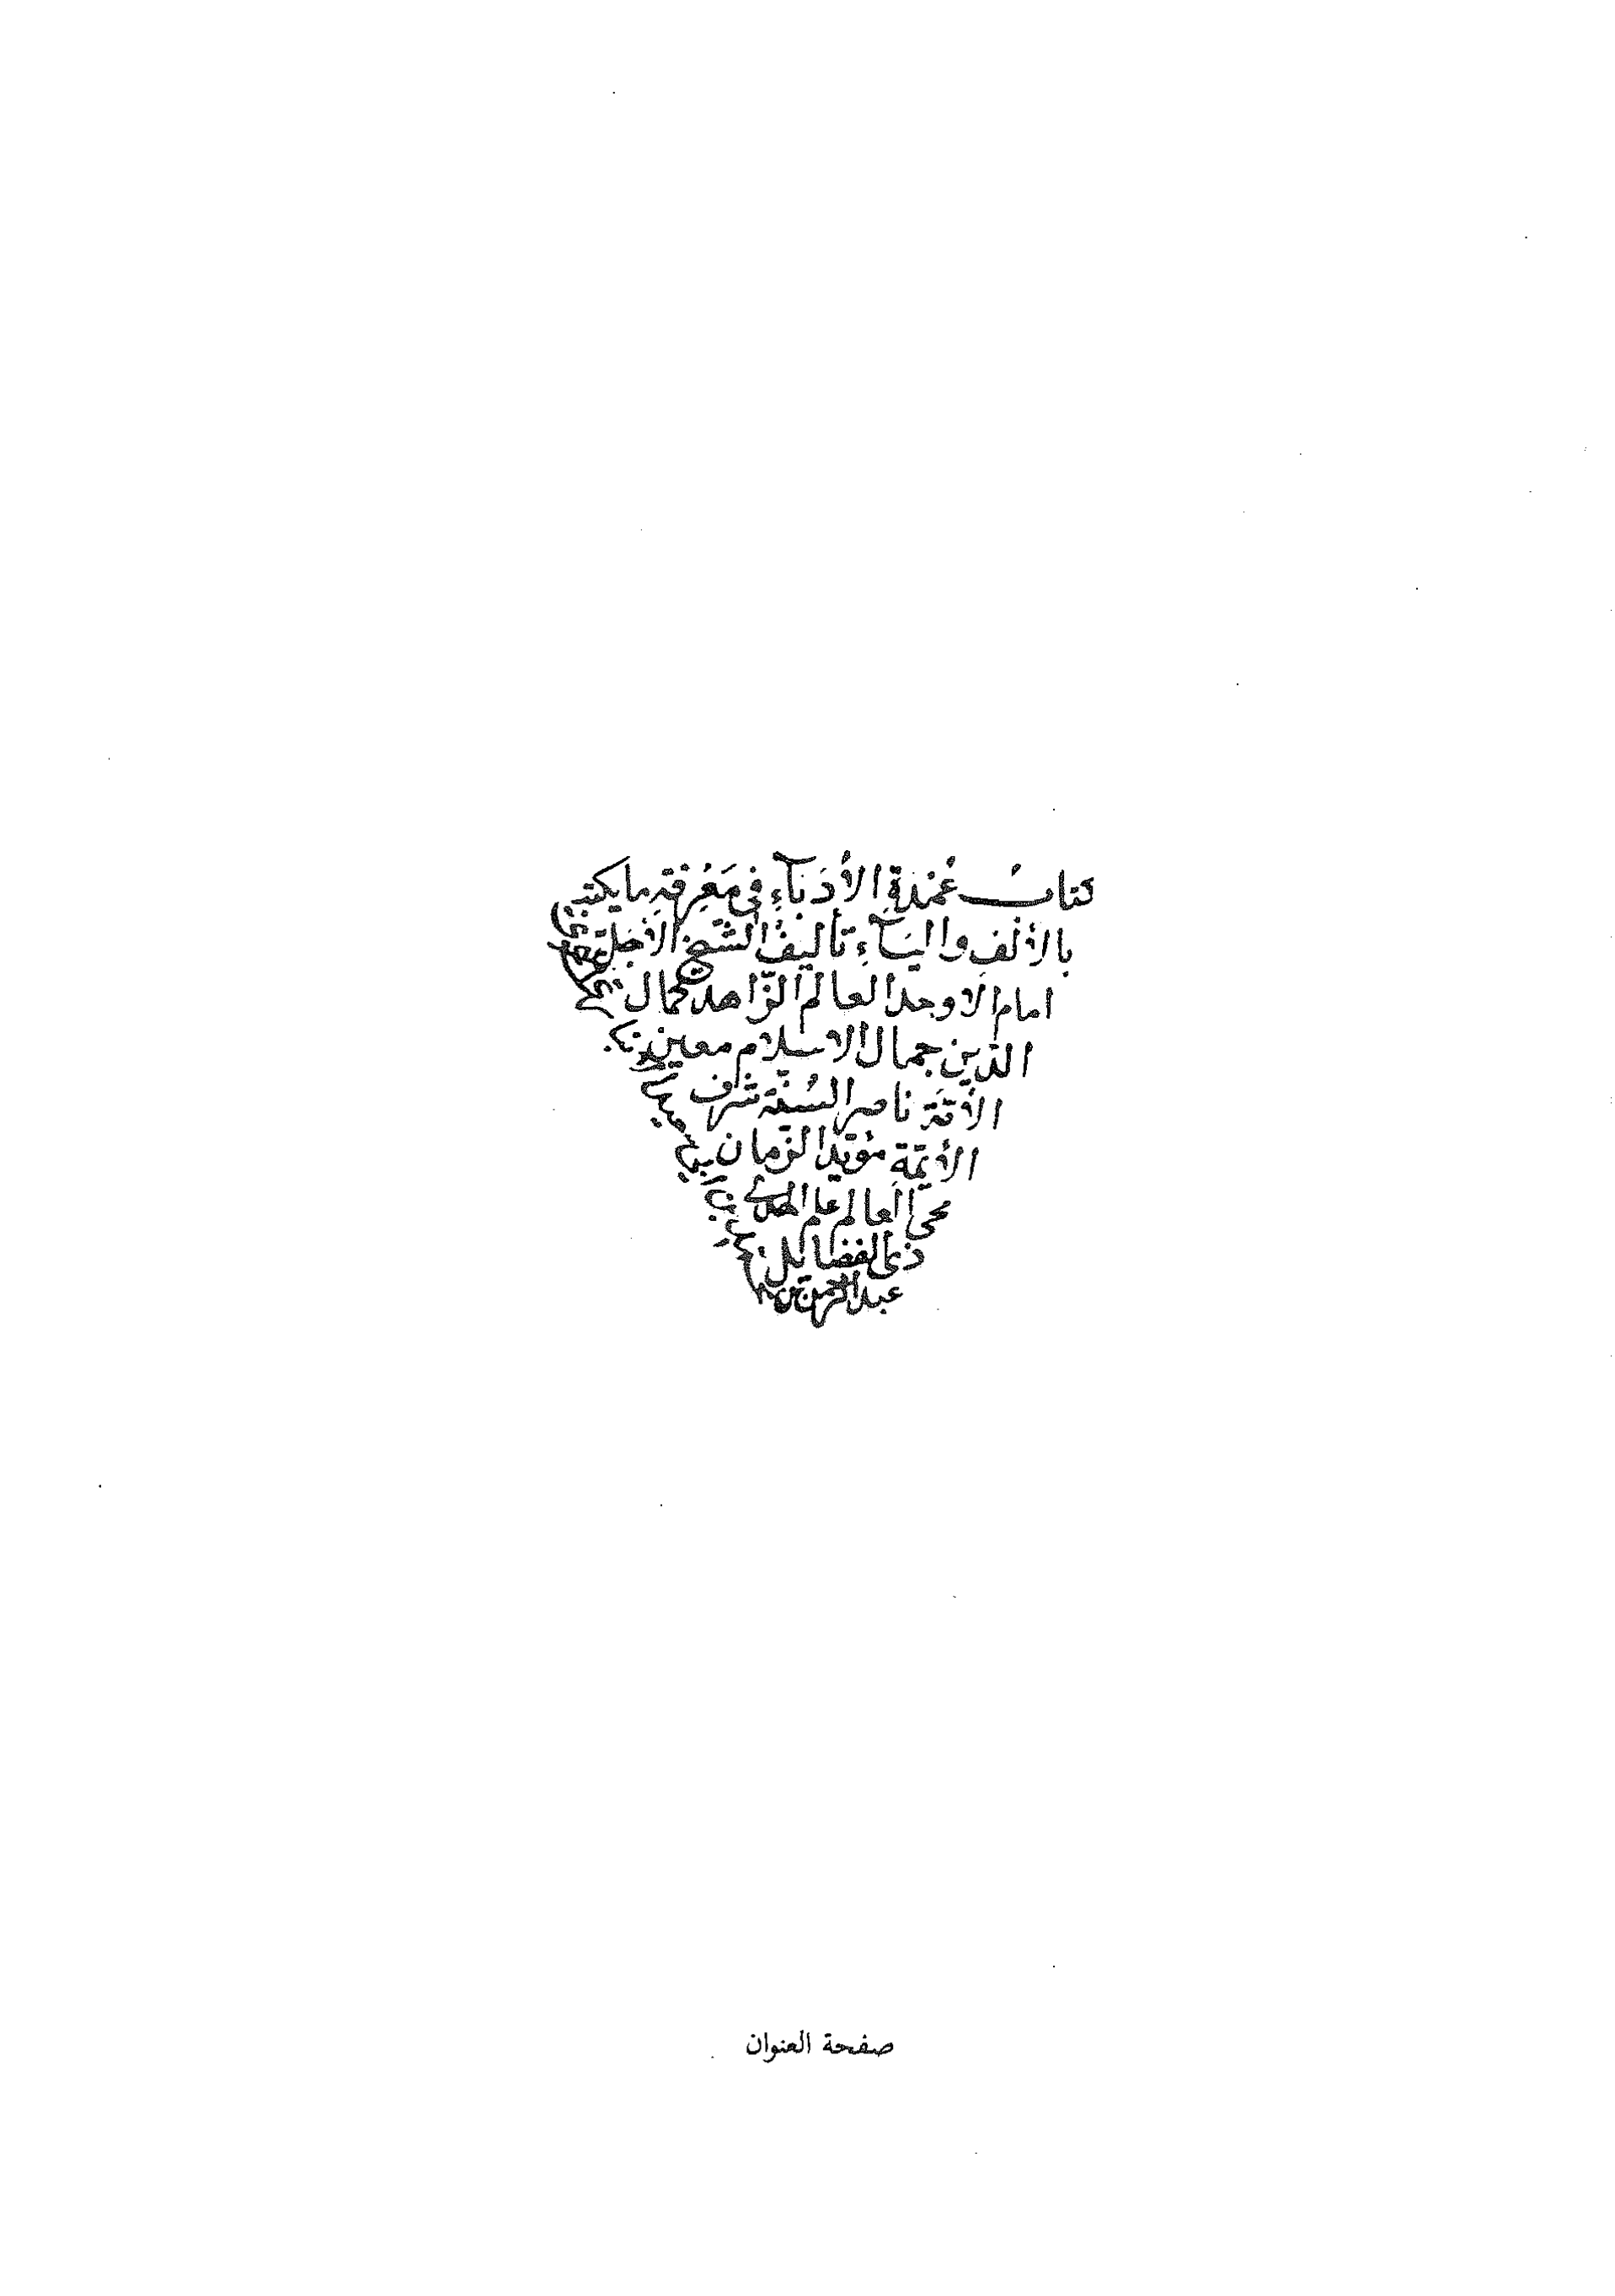 كتابُ عُمْدَةِ الأُدَبآءِ فى مَعْرِفَةِ ما يكتب
بالألفِ واليَآءِ تأليفُ الشّيخ الأجل
امام الاوحد العالم الزّاهد كمال
الدّين جمال الاسلام معين
الأمّة ناصر السُنّة شرف
الأئمّة مؤيّد الزّمان
محى العالم علم الهدى
ذى الفضائل
عبد الرحمن بن
صفحة العنوان